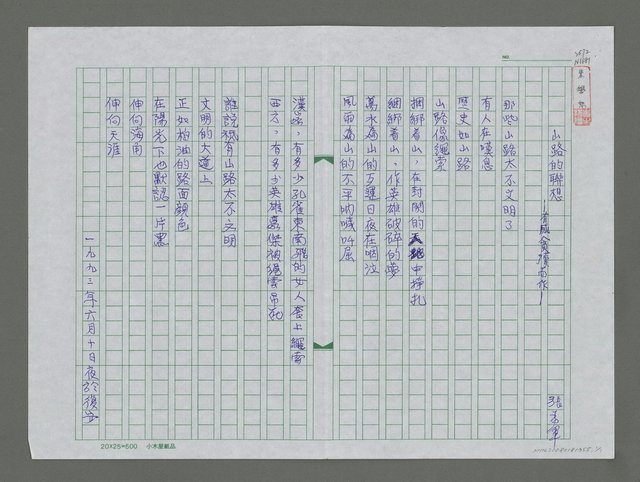 山路的聯想
那些山路太不文明了
有人在嘆息
歷史如山路
山路像繩索
捆綁着山，在封閉的天地中掙扎
綑綁着山，作英雄破碎的夢
萬水為山的百孽日夜在咽泣
風雨為山的不平吶喊叫屈
漢家，有多少孔雀東南飛的女人套上繩索
西方，有多少英雄豪傑被繩索吊死
誰說祇有山路太不文明
文明的大道上
正如柏油的路面顏色
在陽光下也默認一片黑
伸向海角
伸向天涯
一九九三年六月十日夜於復安
NO.
20X25=500 小木屋紙品